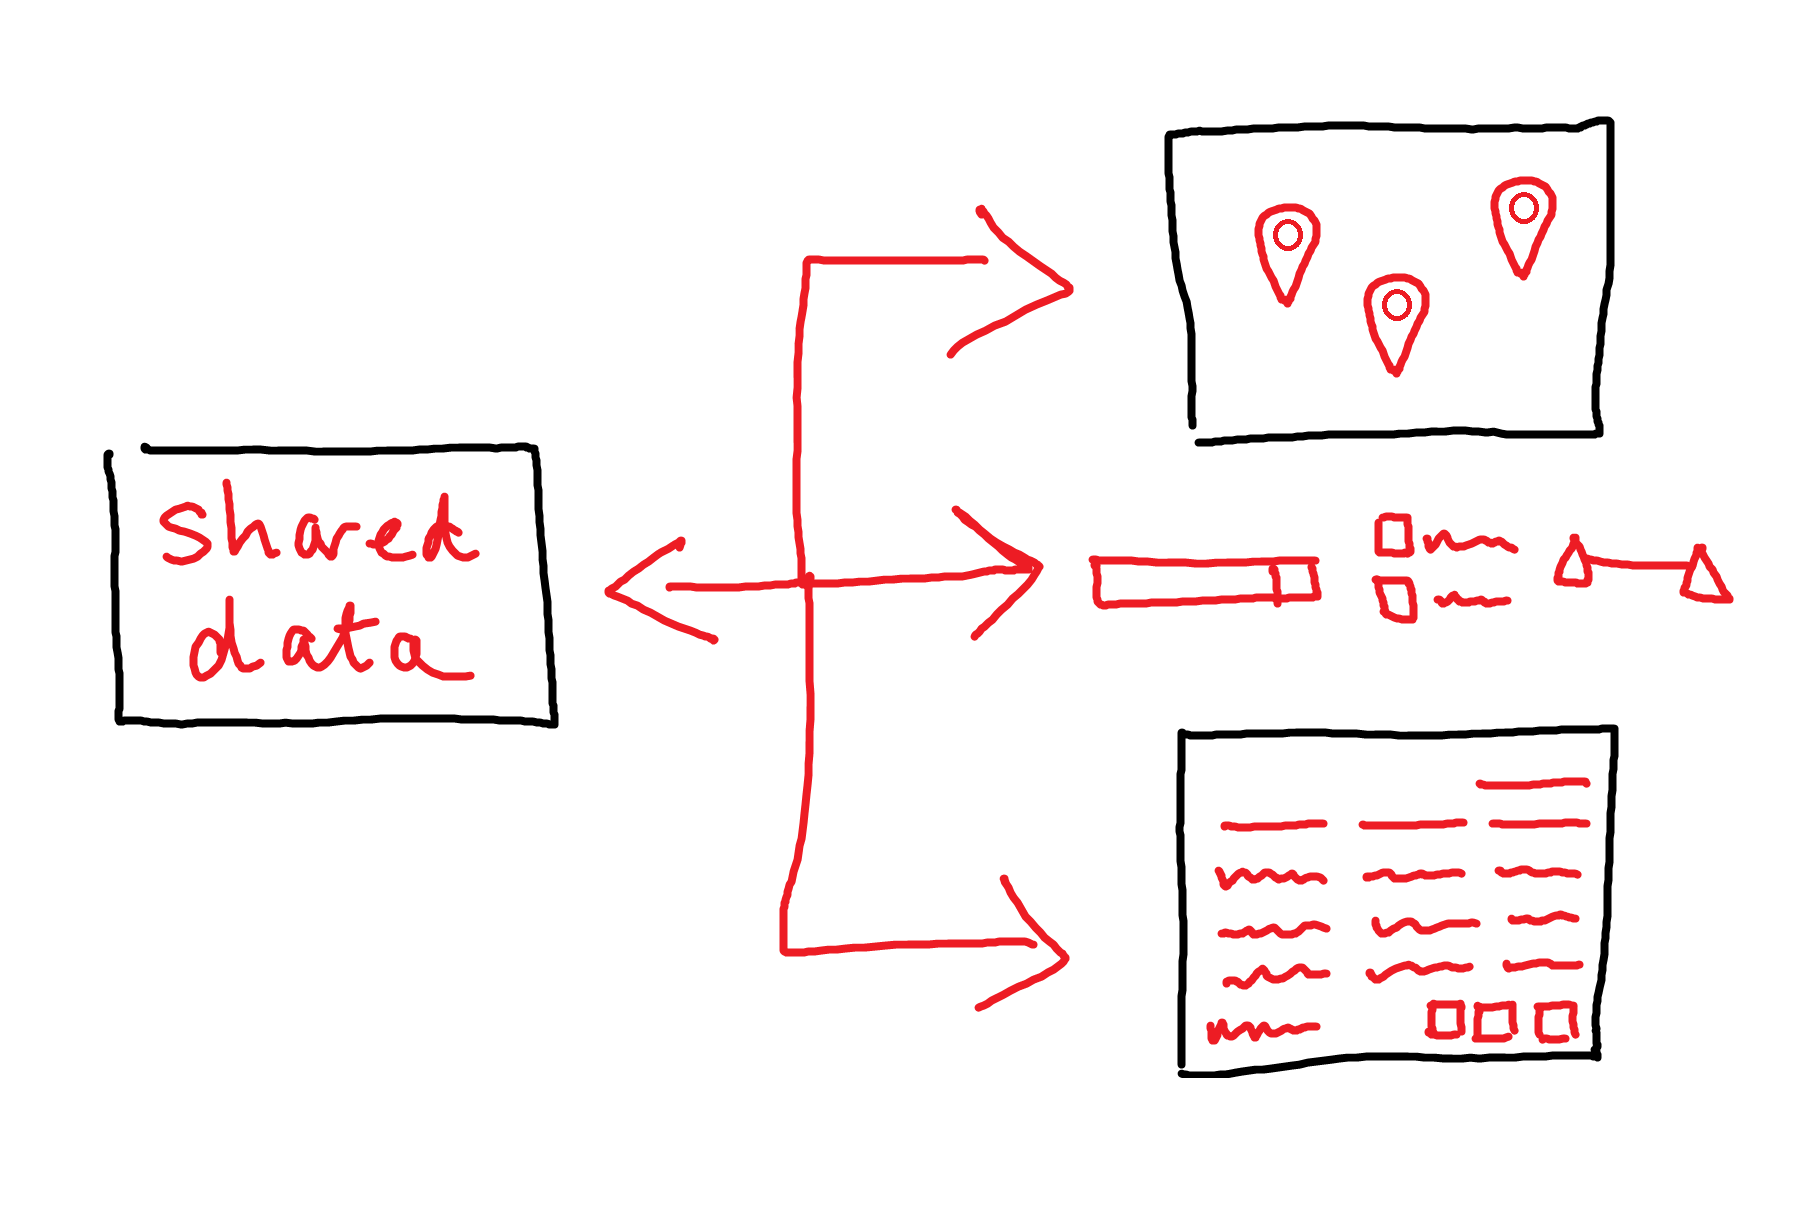 shared
data